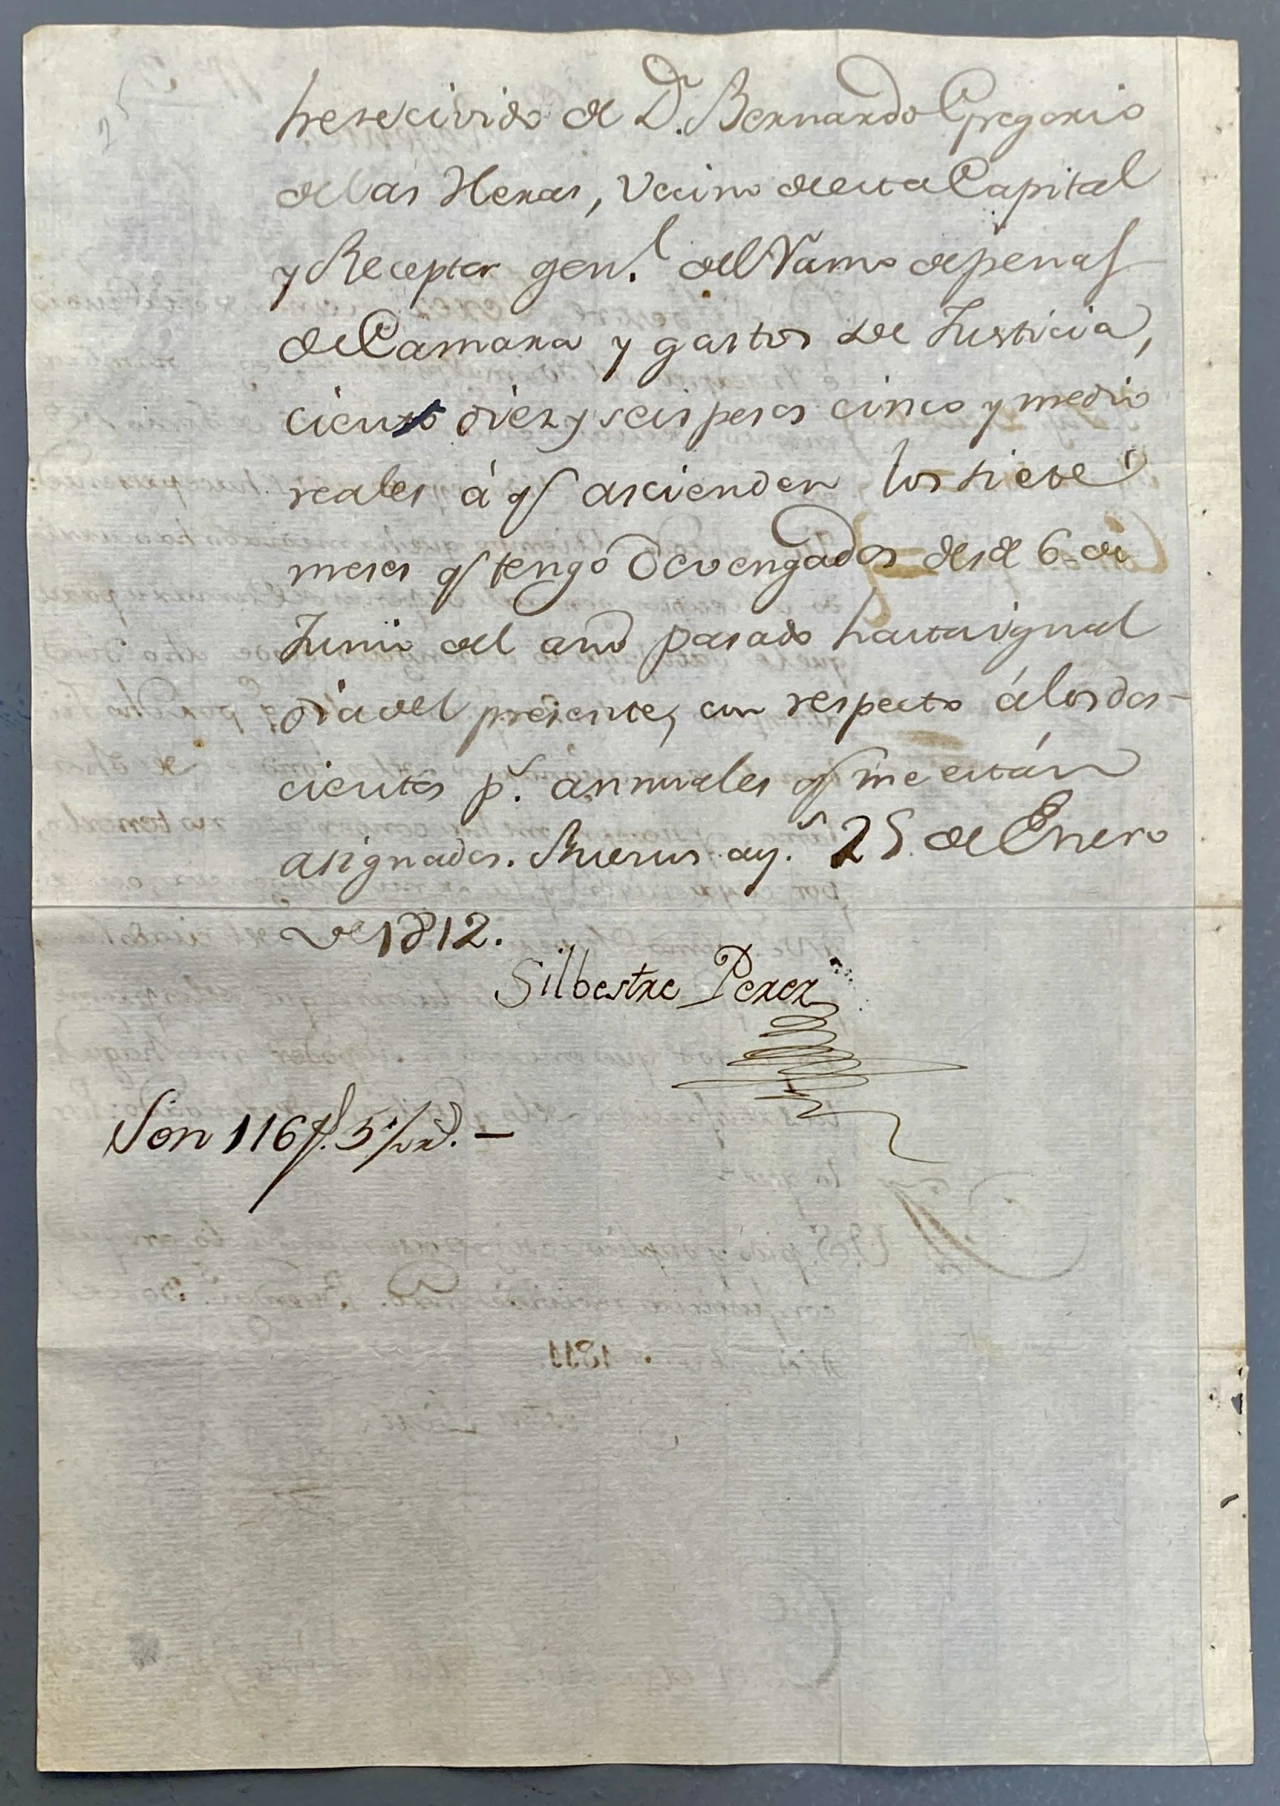 he recivido de Dn. Bernardo Gregorio
de las Heras, Vecino de esta Capital
y Receptor genl. del Ramo de penas
de Camara y gastos de Justicia,
ciento diez y seis pesos cinco y medio
reales á qe ascienden los siete
meses qe tengo devengados desde 6 de
Junio del año pasado hasta igual
dia del presente, con respecto á los dos-
cientos ps. annuales qe me están
asignados. Buenos ays. 25 de Enero
de 1812.
Silbestre Perez
Son 116 ps. 5 1/2 rs. —
1811